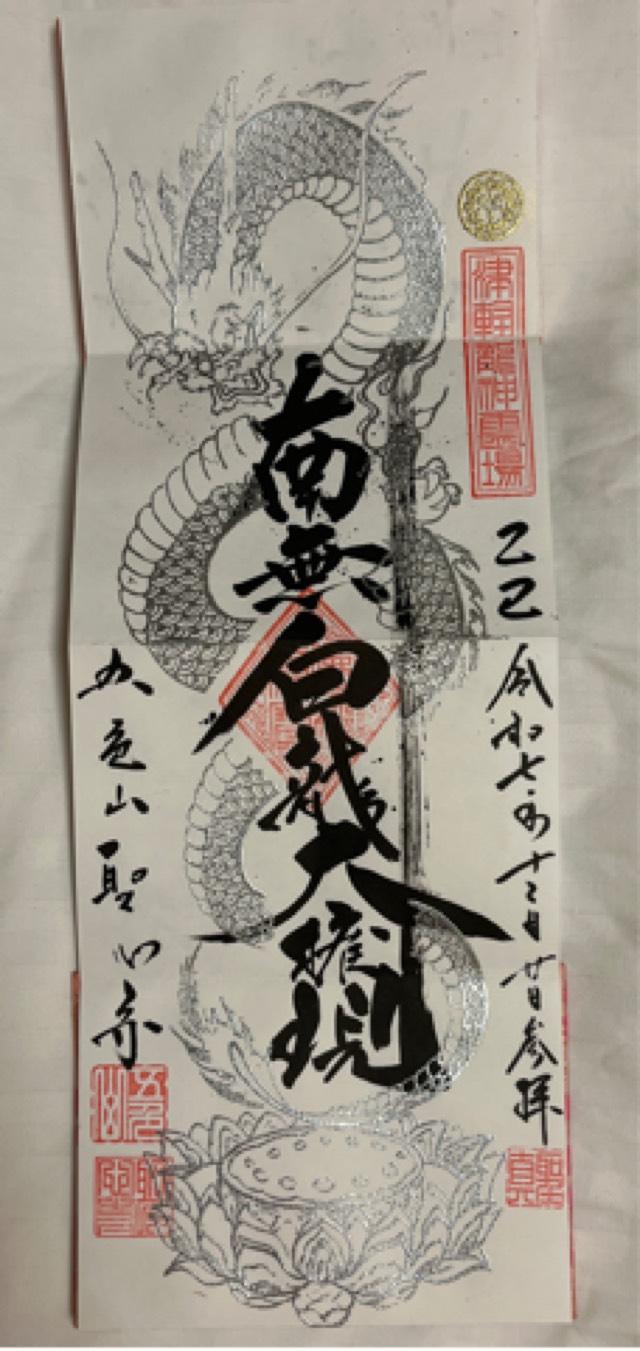 津輪龍神霊場
乙巳 令和七年十二月廿日参拝
南無白龍大権現
五色山聖心